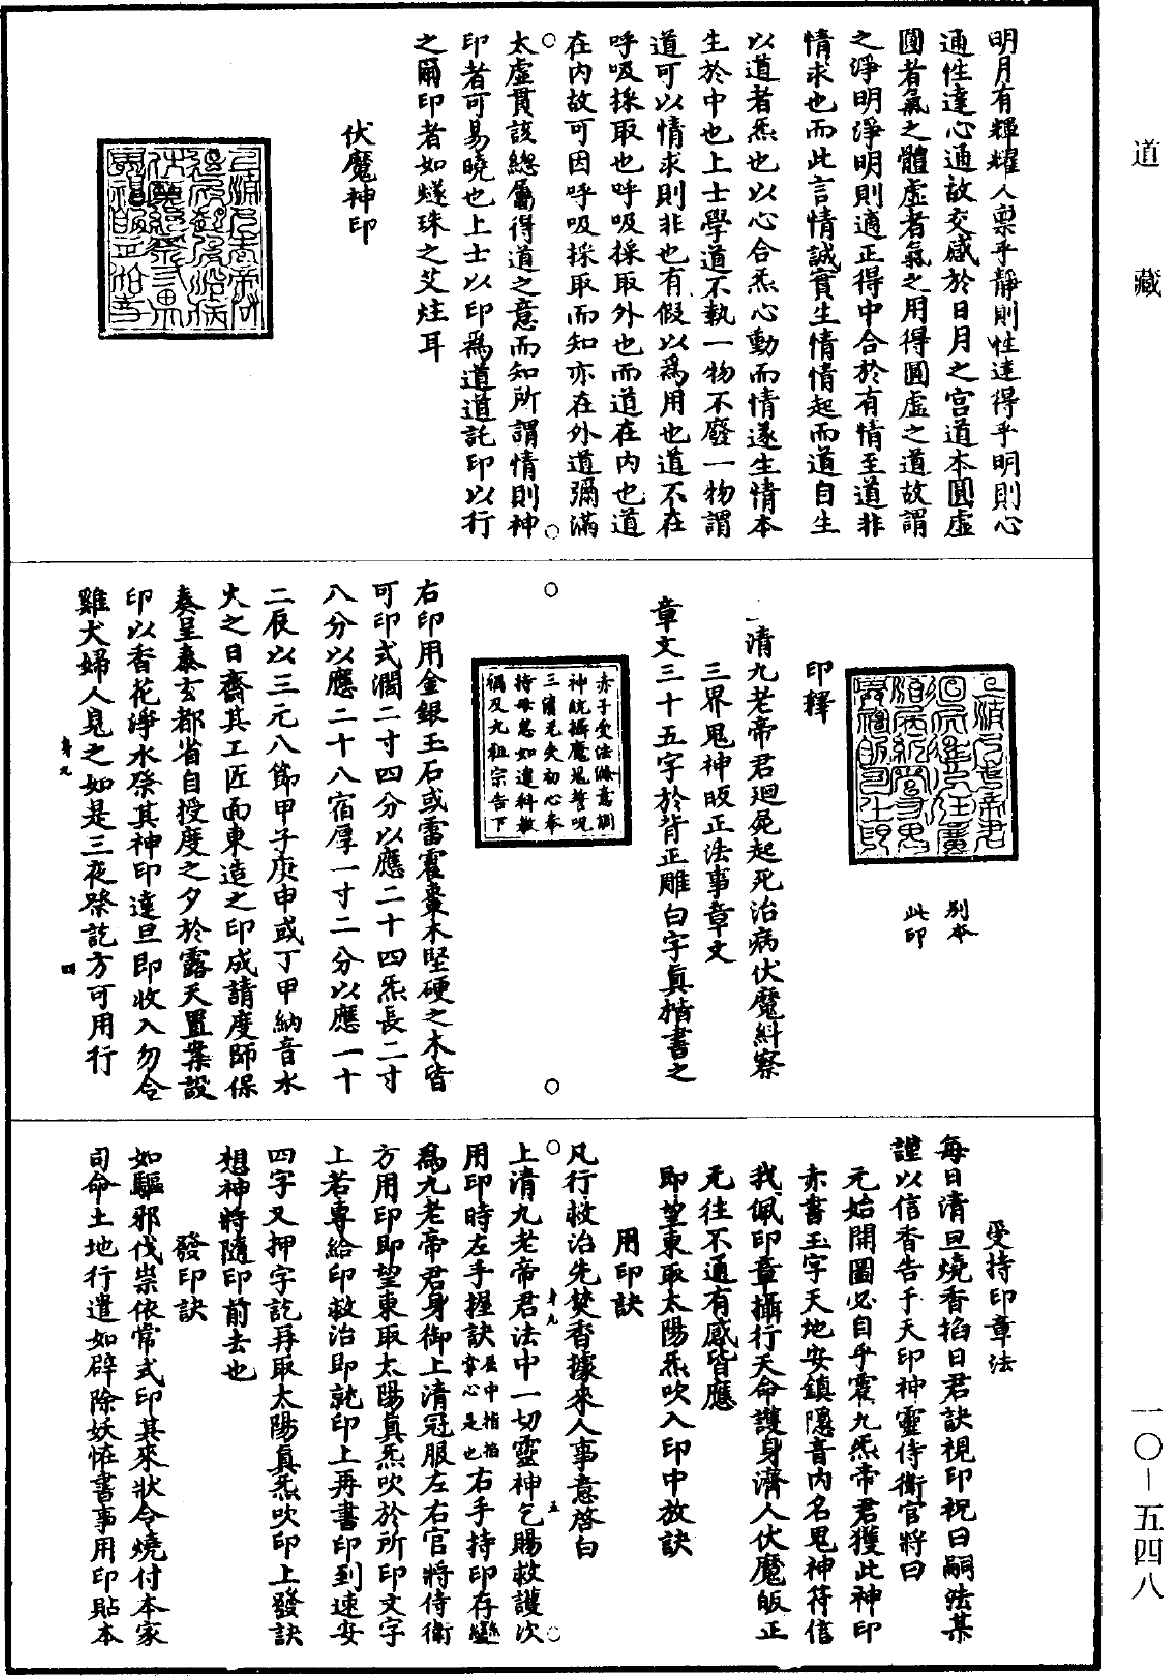 道藏
明月有輝耀人稟乎靜則性達得乎明則心
通性達心通故交感於日月之宮道本圓虛
圓者氣之體虛者氣之用得圓虛之道故謂
之淨明淨明則適正得中合於有情至道非
情求也而此言情誠實生情情起而道自生
以道者炁也以心合炁心動而情遂生情本
生於中也上士學道不執一物不廢一物謂
道可以情求則非也有假以為用也道不在
呼吸採取也呼吸採取外也而道在内也道
在内故可因呼吸採取而知亦在外道彌滿
太虛貫該緫屬得道之意而知所謂情則神
印者可易曉也上士以印為道道託印以行
之爾印者如燧珠之艾炷耳
伏魔神印
別本
此印
印釋
上清九老帝君廻屍起死治病伏魔糾察
三界鬼神皈正法事章文
章文三十五字於背正雕白字真楷書之
赤子受法滌意測
神皖攝魔鬼誓呪
三清无失初心奉
持毋怠如違科教
禍及九祖宗告下
右印用金銀玉石或雷霍棗木堅硬之木皆
可印式濶二寸四分以應二十四炁長二寸
八分以應二十八宿厚一寸二分以應一十
二辰以三元八節甲子庚申或丁甲納音水
火之日齋其工匠面東造之印成請度師保
奏呈泰玄都省自授度之夕於露天置案設
印以香花淨水祭其神印達旦即收入勿令
雞犬婦人見之如是三夜祭訖方可用行
受持印章法
每日清旦燒香掐日君訣視印祝曰嗣法某
謹以信香告于天印神靈侍衛官將曰
元始開圖必自乎震九炁帝君獲此神印
赤書玉字天地安鎮隱音内名鬼神符信
我佩印章攝行天命護身濟人伏魔皈正
无往不通有感皆應
即望東取太陽炁吹入印中放訣
用印訣
凡行救治先焚香據來人事意啓白
上清九老帝君法中一切靈神乞賜救護次
用印時左手握訣屈中指掐掌心是也右手持印存變
為九老帝君身御上清冠服左右官將侍衛
方用印即望東取太陽真炁吹於所印文字
上若專給印救治即就印上再書印到速安
四字又押字訖再取太陽真炁吹印上發訣
想神將隨印前去也
發印訣
如驅邪伐祟依常式印其來狀令燒付本家
司命土地行遣如辟除妖怪書事用印貼本
一〇—五四八